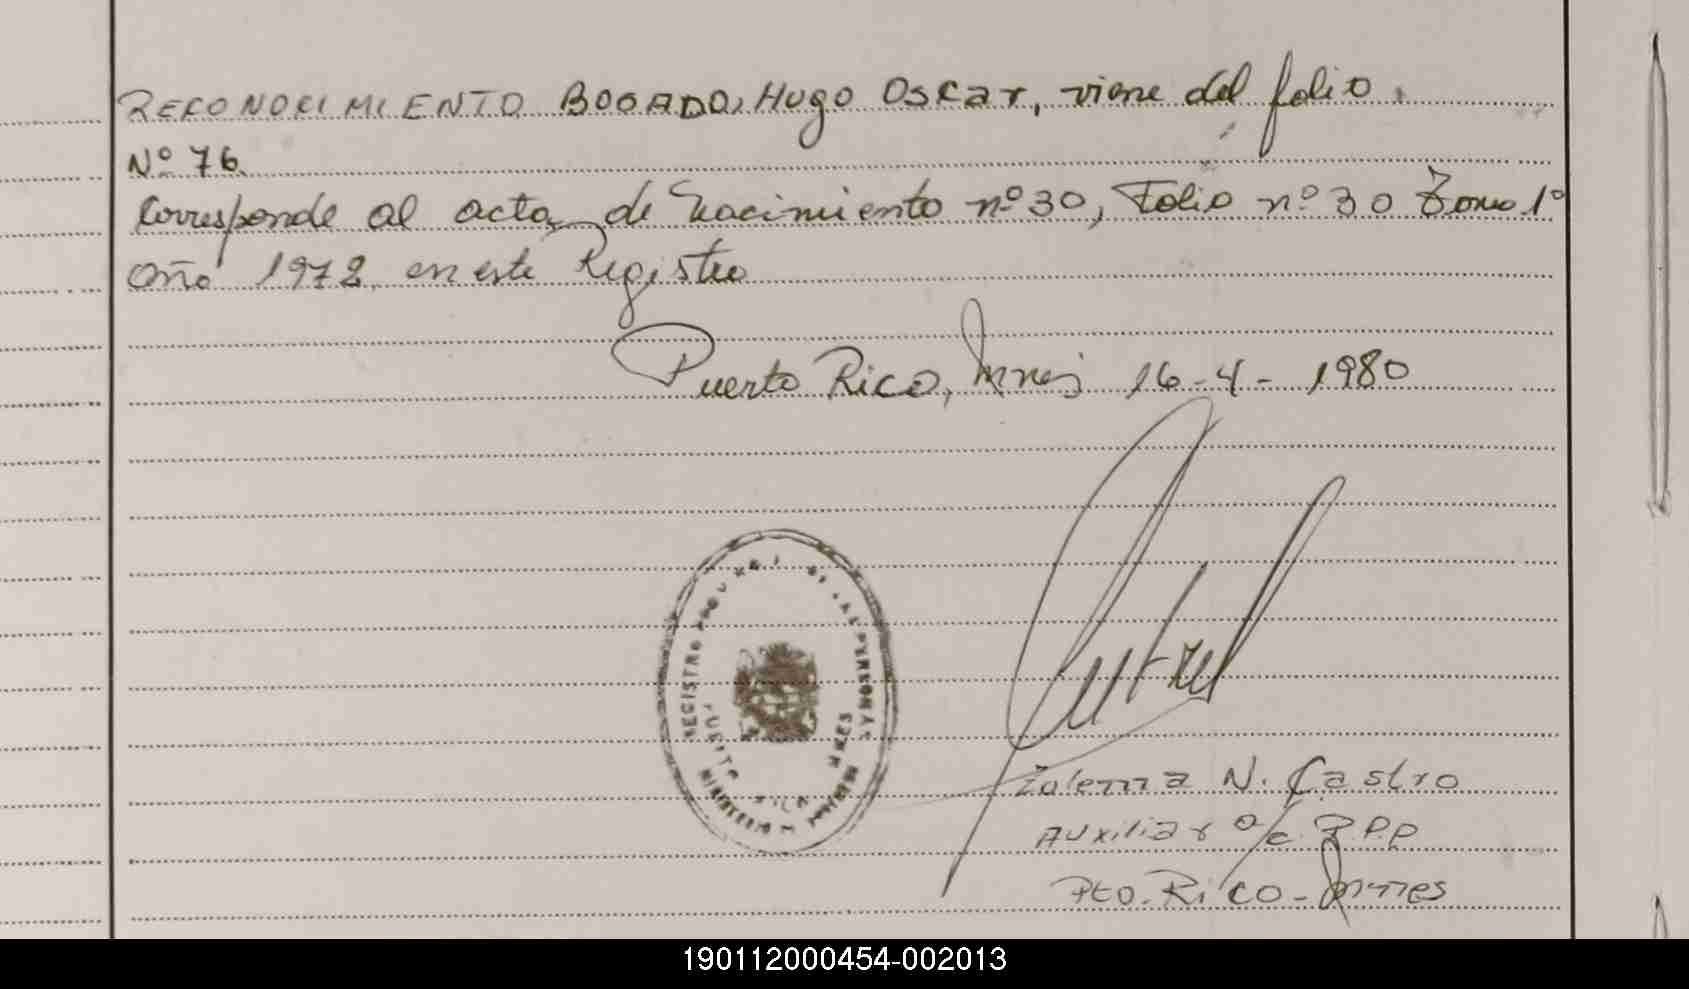 RECONOCIMIENTO BOGADO, Hugo Oscar, viene del folio
Nº 76.
Corresponde al acta de Nacimiento nº 30, Folio nº 30 Tomo 1º
año 1972, en este Registro
Puerto Rico, Mnes 16-4-1980
REGISTRO PROVINCIAL DE LAS PERSONAS
PUERTO RICO MNES
Zulema N. Castro
Auxiliar a/c R.P.P
Pto. Rico - Mnes
190112000454-002013